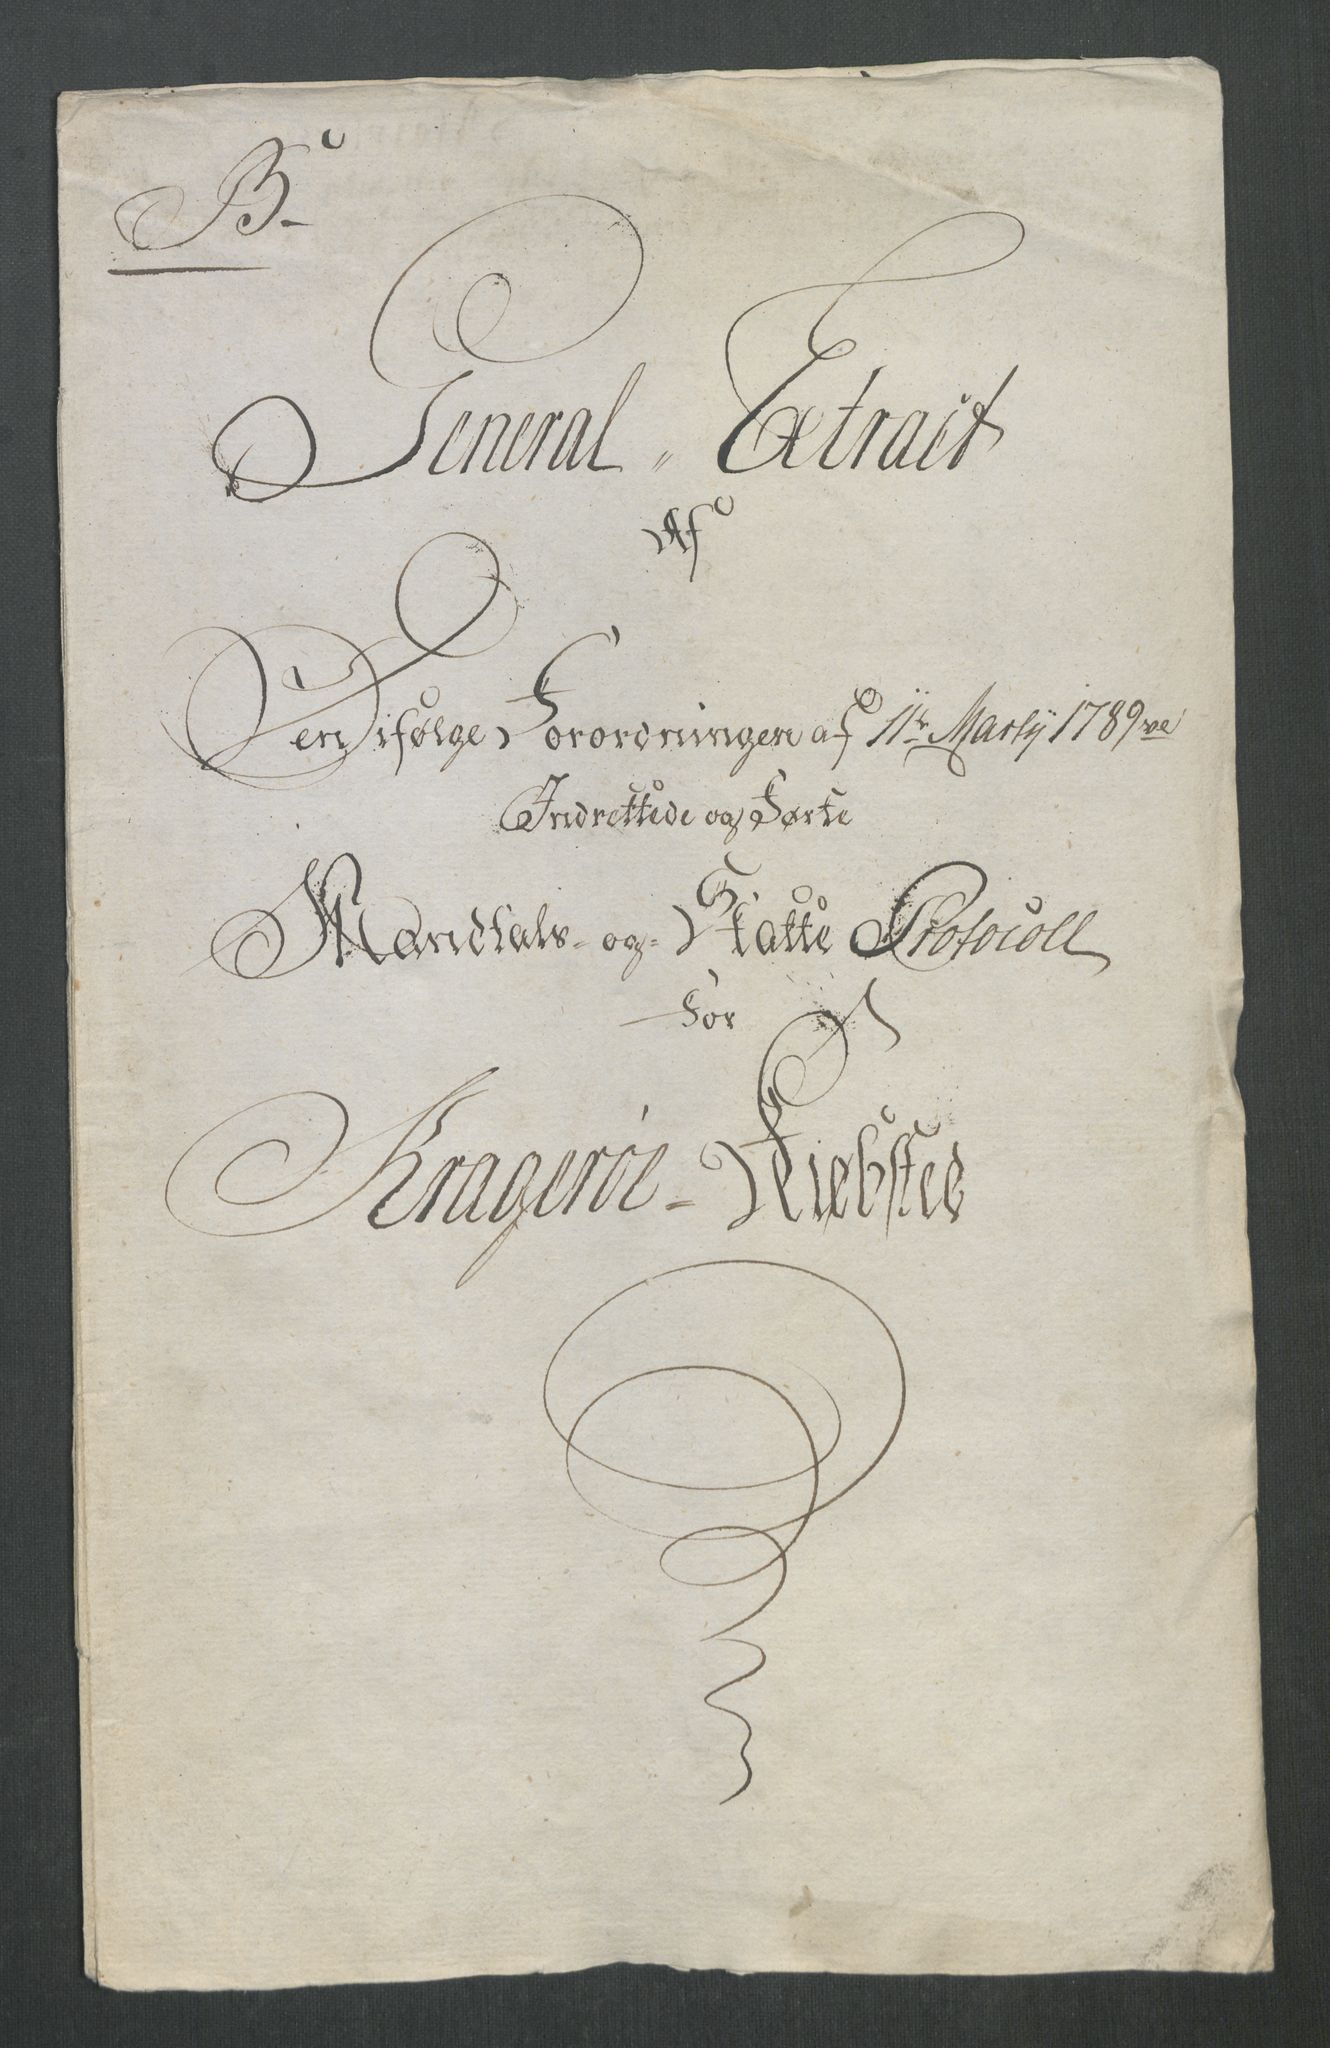 B.
General Extract
Af
Den ifølge Forordningen af 11te Martÿ 1789ve
Indrettede og Førte
Mandtals- og- Skatte Protocoll
For
Kragerøe- Kiøbsted